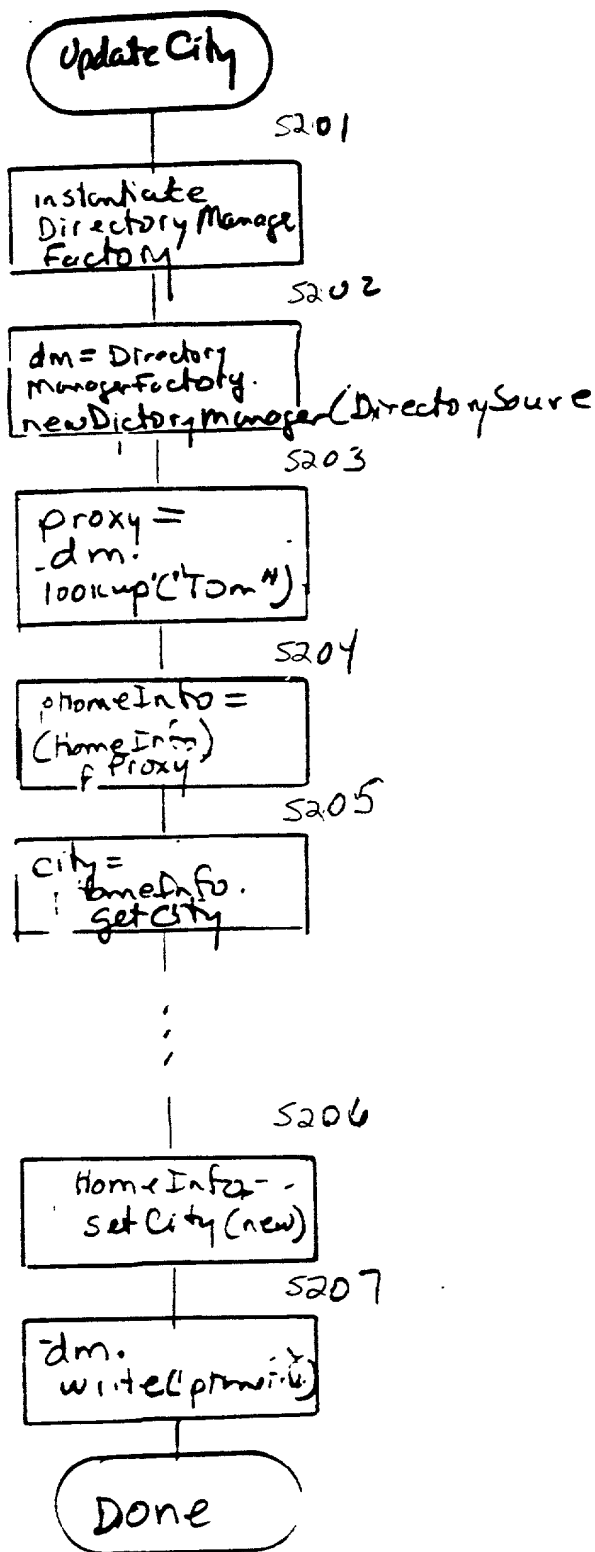 Update City
S201
instantiate
Directory Manage
Factory
S202
dm = Directory
ManagerFactory.
newDictoryManager(DirectorySource
S203
proxy =
dm.
lookup("Tom")
S204
HomeInfo =
(HomeInfo)
Proxy
S205
city =
omeInfo.
getCity
S206
HomeInfo
setCity (new)
S207
dm.
write(
Done